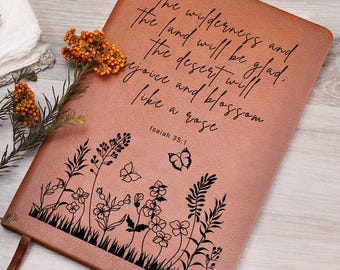 the wilderness and
the land will be glad;
the desert will
rejoice and blossom
like a rose
Isaiah 35:1